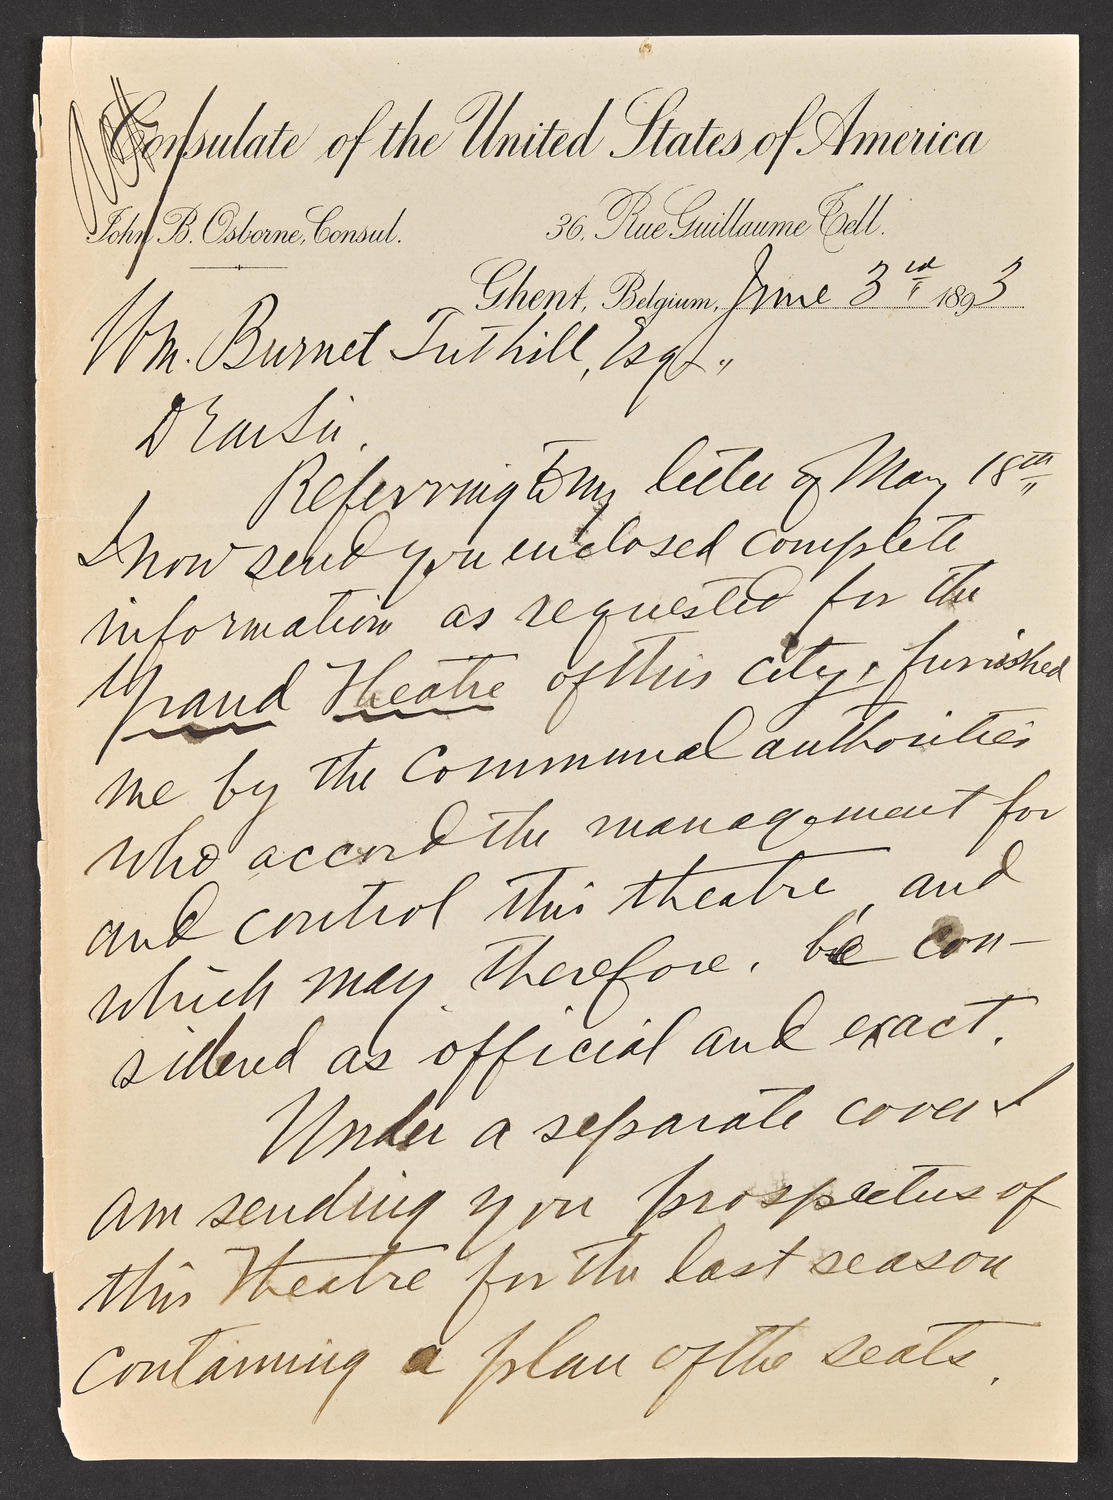 Consulate of the United States of America
John B. Osborne, Consul. 36, Rue Guillaume Tell.
Ghent, Belgium, June 3rd 1893
Wm. Burnet Tuthill, Esq.,
Dear Sir.
Referring to my letter of May 18th
I now send you enclosed complete
information as requested for the
Grand Theatre of this city, furnished
me by the Communal authorities
who accord the management for
and control this theatre, and
which may, therefore, be con-
sidered as official and exact.
Under a separate cover I
am sending you prospectus of
this Theatre for the last season
containing a plan of the seats.